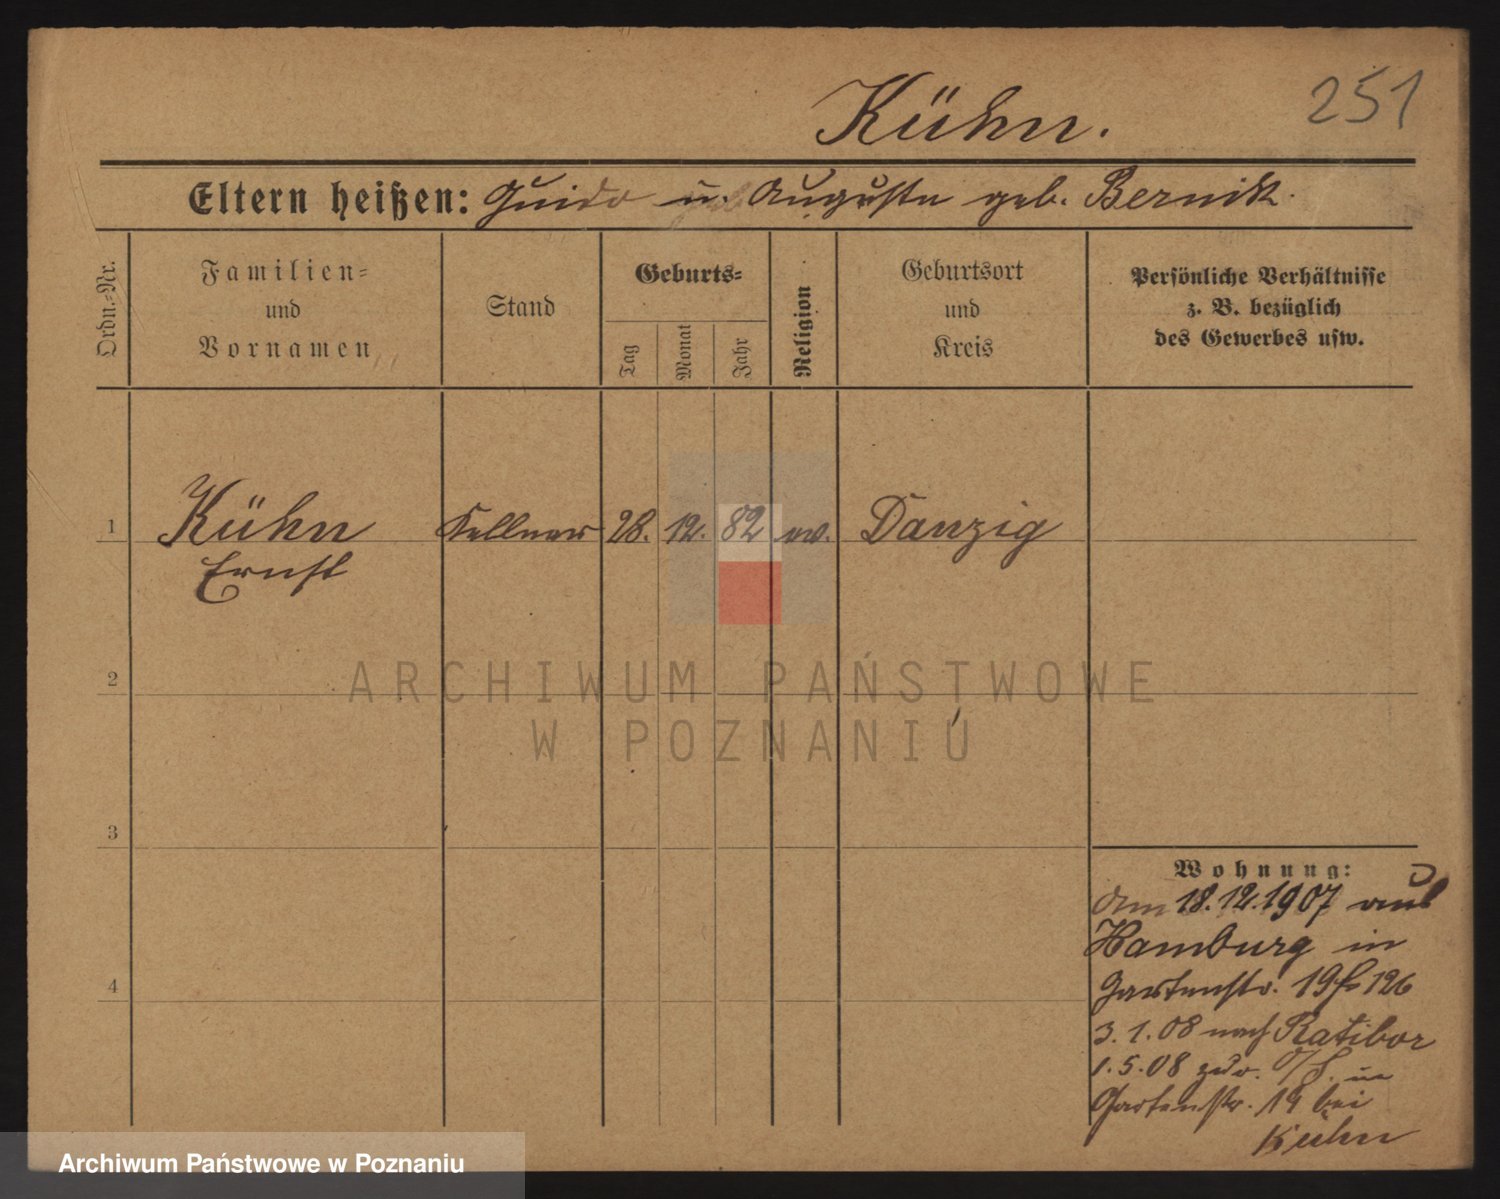 251
Kühn.
Eltern heißen: Guido u. Auguste geb. Bernik.
Ordn.-Nr.
Familien-
und
Vornamen
Stand
Geburts-
Tag
Monat
Jahr
Religion
Geburtsort
und
Kreis
Persönliche Verhältnisse
z. B. bezüglich
des Gewerbes usw.
1 Kühn Kellner 28. 12. 82 ev. Danzig
Ernst
2
ARCHIWUM PAŃSTWOWE
W POZNANIU
3
4
Wohnung:
Am 18.12.1907 aus
Hamburg in
Gartenstr. 19 126
3.1.08 nach Ratibor
1.5.08 zur. O/S. in
Gartenstr. 19 bei
Kühn
Archiwum Państwowe w Poznaniu